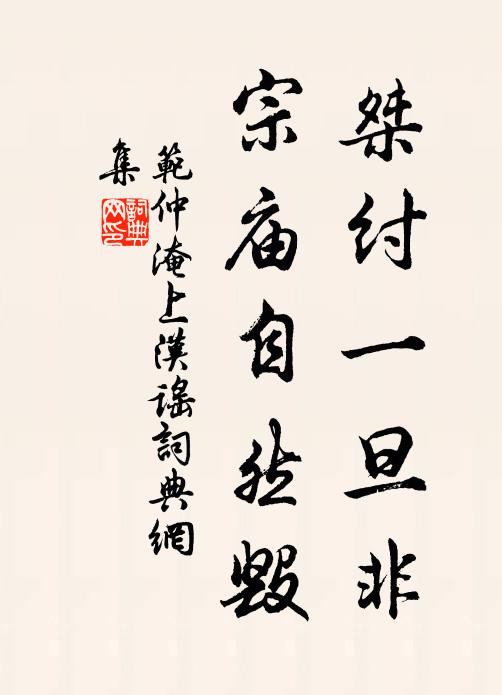 桀纣一旦非
宗庙自然毁
範仲淹上漢謠詞典網
集
詞典網印